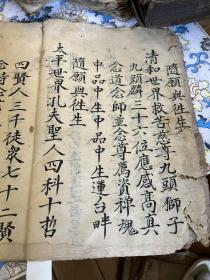 隨願與徃生
清和世界救苦慈尊九頭獅子
九頭麟三十六位應感髙真
念道念師並念尊薦資禪魂
中品中生中品生蓮台畔
隨願與徃生
太平世界孔夫聖人四科十哲
四賢人三千徒衆七十二賢